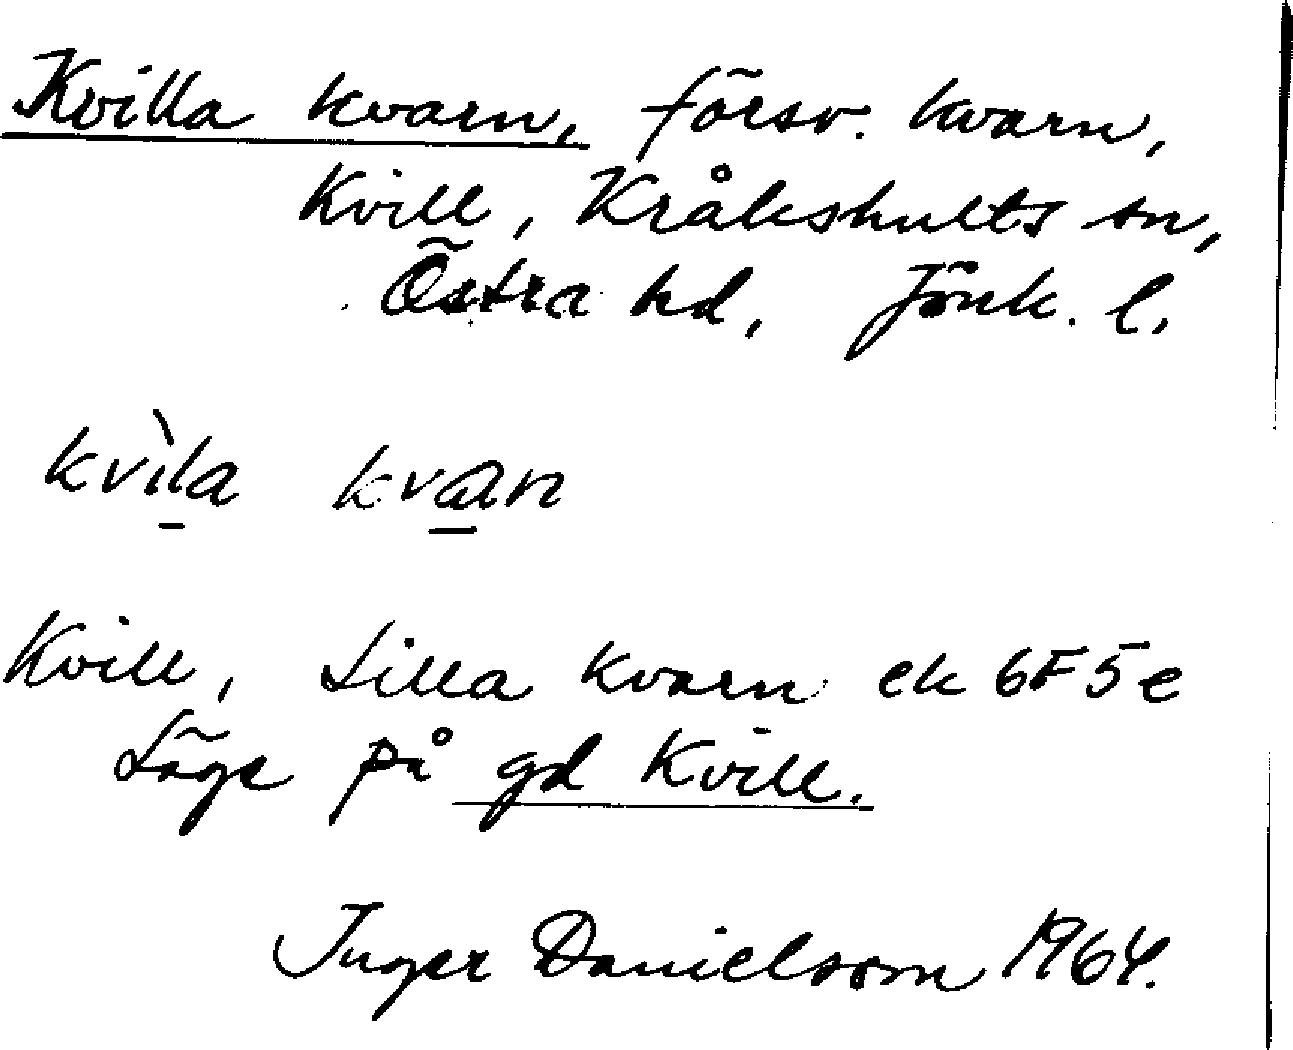 Kvilla kvarn, försv. kvarn,
Kvill, Kråkshults sn,
Östra hd, Jönk. l.
kvìla kvan
Kvill, Lilla kvarn ek 6F5e
Läge på gd Kvill.
Inger Danielsson 1964.